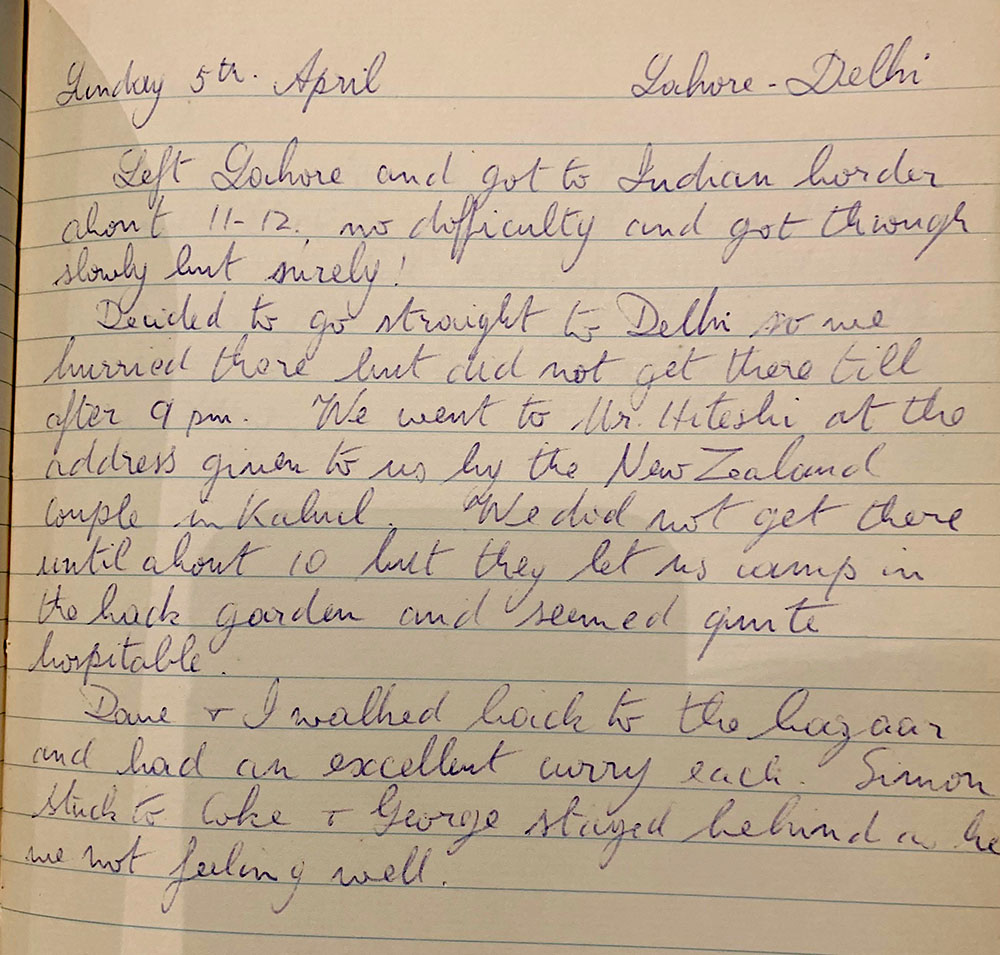 Sunday 5th. April Lahore - Delhi
Left Lahore and got to Indian border
about 11-12, no difficulty and got through
slowly but surely!
Decided to go straight to Delhi so we
hurried there but did not get there till
after 9 pm. We went to Mr. Hiteshi at the
address given to us by the New Zealand
couple in Kabul. We did not get there
until about 10 but they let us camp in
the back garden and seemed quite
hospitable.
Dave + I walked back to the bazaar
and had an excellent curry each. Simon
stuck to Coke + George stayed behind as he
was not feeling well.